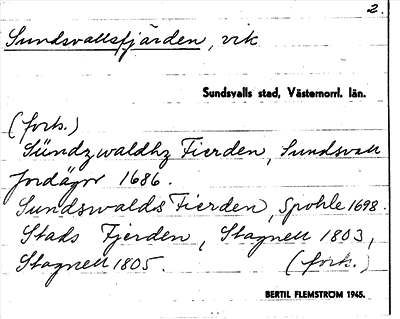 2.
Sundsvallsfjärden, vik
Sundsvalls stad, Västernorrl. län.
(forts.)
Sündzwaldhz Fierden, Sundsvall
Jordägor 1686.
Sundswalds Fierden, Spohle 1698.
Stads Fjerden, Stagnell 1803,
Stagnell 1805. (forts.)
BERTIL FLEMSTRÖM 1945.